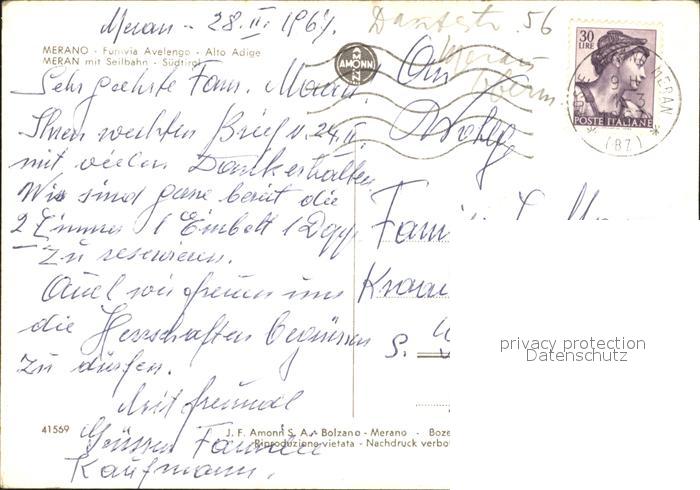 Meran - 28. II. 1967.
56
MERANO - Funivia Avelengo - Alto Adige
MERAN mit Seilbahn - Südtirol
AMONN
30
LIRE
POSTE ITALIANE
MERAN
(BZ)
Sehr geehrte Fam.
An
Ihren werten Brief v. 24. II.
mit vielen Dank erhalten
Wir sind gane bereit die
2 Zimmer 1 Einbett 1 Dopp.
zu reservieren.
Fam
Auch wir freuen uns
die Herrschaften begrüssen
S.
zu dürfen.
privacy protection
Datenschutz
Mit freundl
41569
J. F. Amonn S. A. - Bolzano - Merano - Boze
Grüssen Familie
Riproduzione vietata - Nachdruck verbo
Kaufmann.